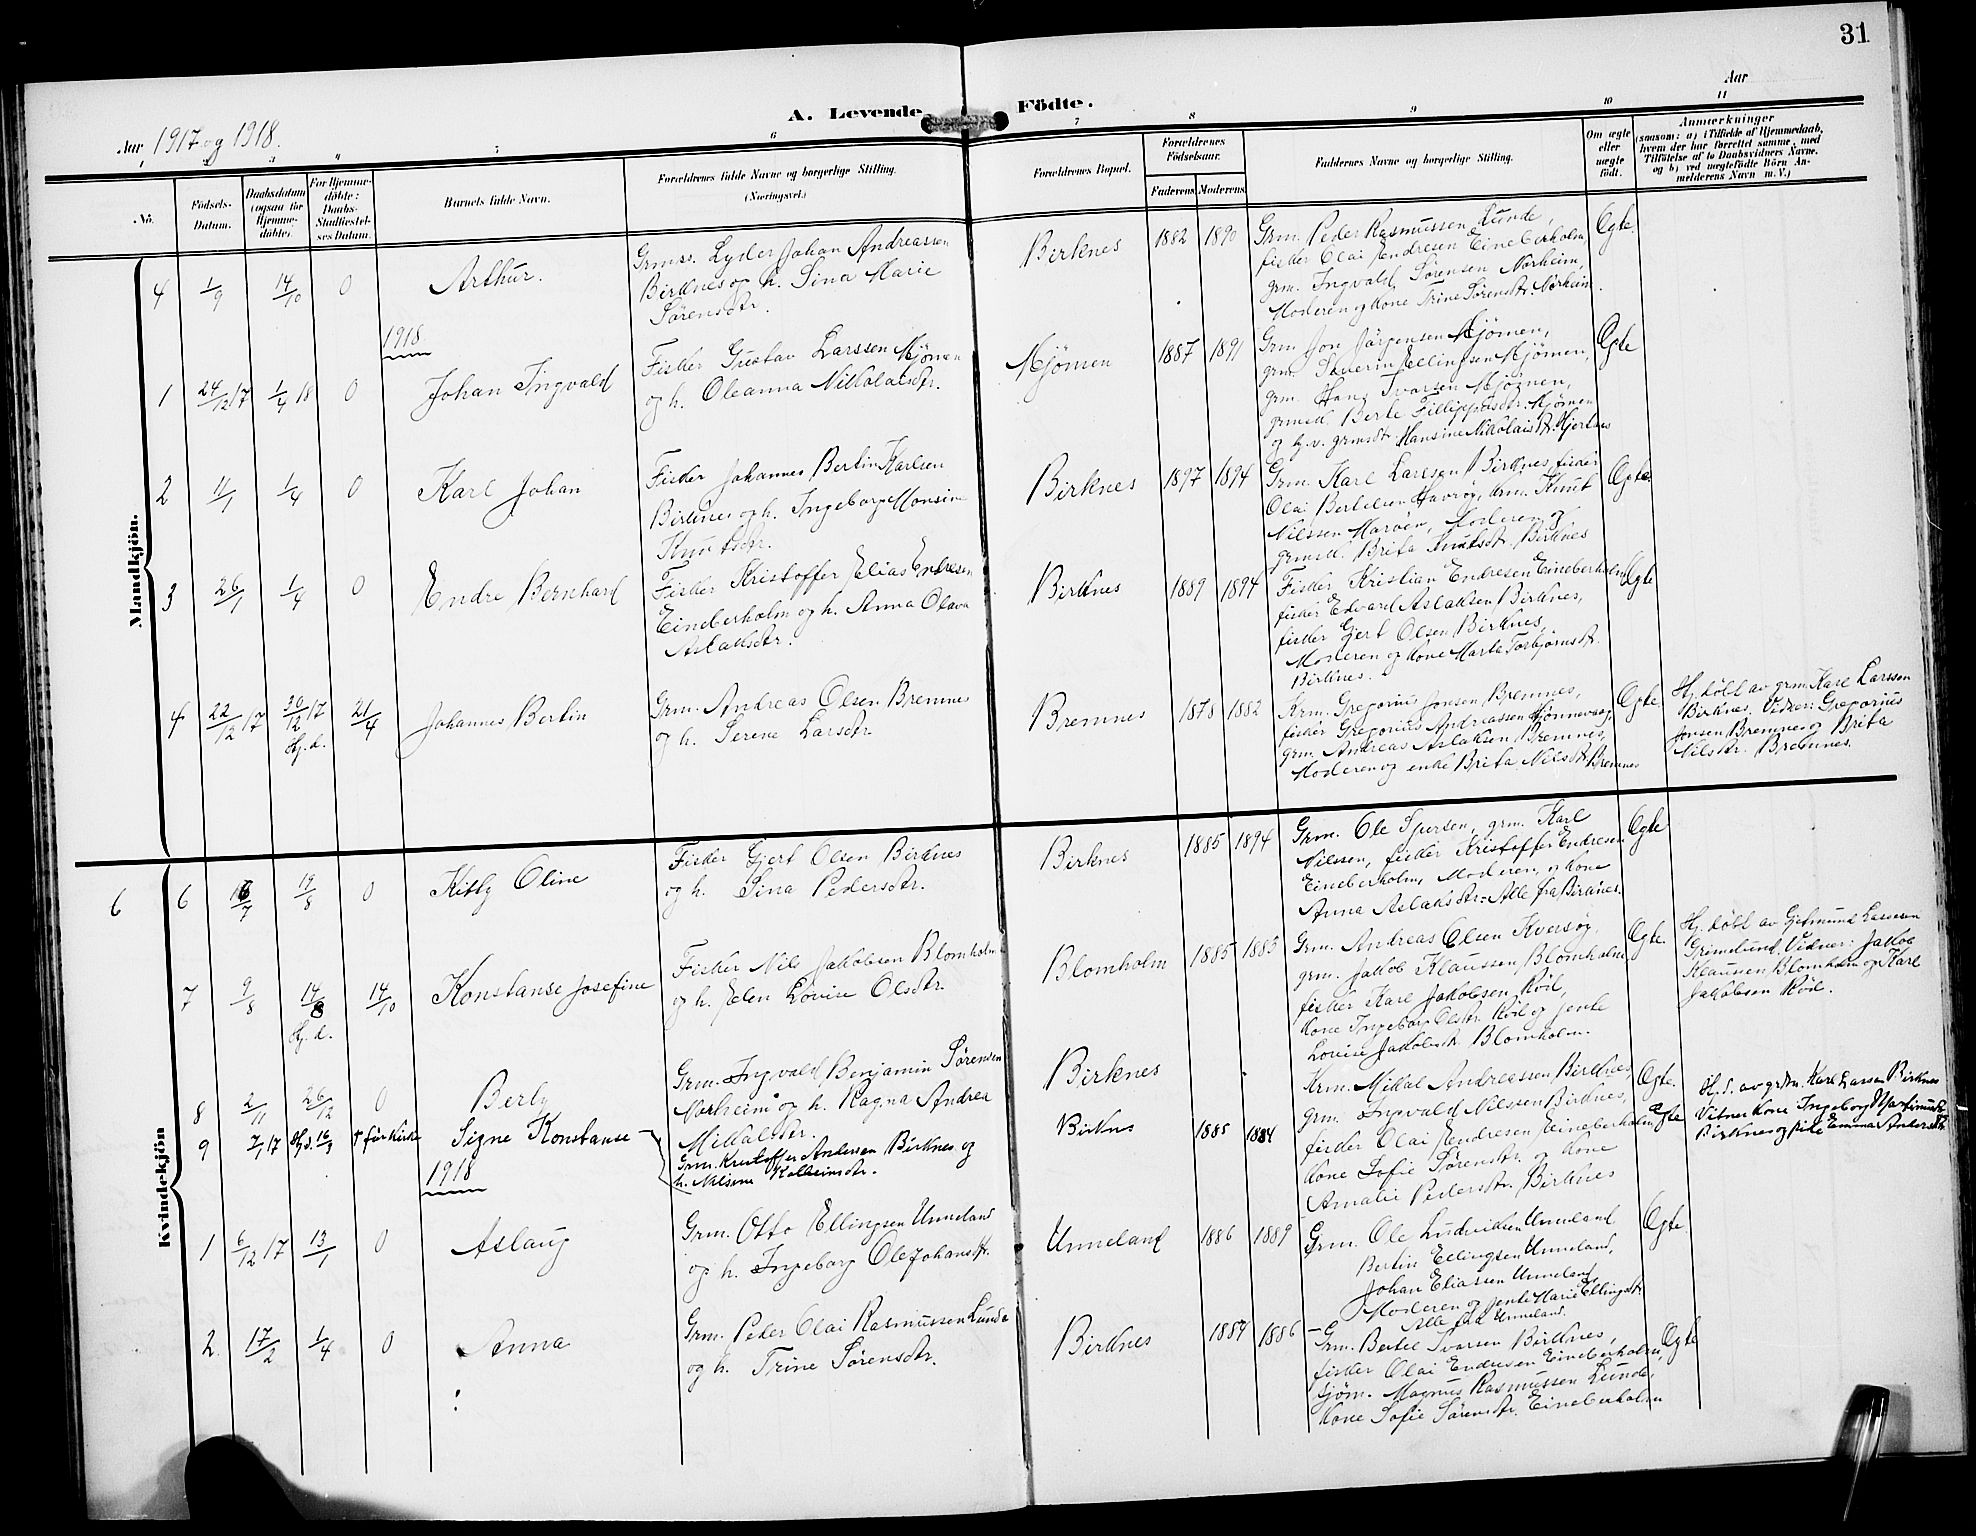 31
Aar
A. Levende Födte.
Aar 1917 og 1918.
6 7 8 9 10 11
Nö.
Födsels-
Datum.
Daabsdatum
(ogsaa for
Hjemme-
döbte).
For Hjemme-
döbte:
Daabs-
Stadfæstel-
ses Datum.
Barnets fulde Navn.
Forældrenes fulde Navne og borgerlige Stilling.
(Næringsvei.)
Forældrenes Bopæl.
Forældrenes
Födselsaar.
Faderens. Moderens.
Faddernes Navne og borgerlige Stilling.
Om ægte
eller
uægte
födt.
Anmærkninger
(saasom: a) i Tilfælde af Hjemmedaab,
hvem der har forrettet samme, med
Tilföielse af to Daabsvidners Navne.
og b) ved uægtefödte Börn An-
melderens Navn m. V.)
Mandkjön.
4 1/9 14/10 0 Arthur.
Grmss. Lyder Johan Andreassen
Birknes og h. Sina Marie
Sørensdtr.
Birknes 1882 1890
Grm. Peder Rasmussen Lunde,
fisker Olai Endresen Eineberholm,
grm. Ingvald Sørensen Norheim,
Moderen og Kone Trine Sørensdtr. Norheim.
Ægte
1918
1 24/12 17 1/4 18 0 Johan Ingvald
Fisker Gustav Larssen Mjømen
og h. Oleanna Nikolaisdtr.
Mjømen 1887 1891
Grm. Jon Jørgensen Mjømen,
grm. Severin Ellingsen Mjømen,
grm. Hans Ivarsen Mjømen,
Berte Fillippusdtr. Mjømen
og Hansine Nikolaisdtr.
Ægte
2 11/1 1/4 0 Karl Johan
Fisker Johannes Bertin Karlsen
Birknes og h. Ingeborg Monsine
Knutsdtr.
Birknes 1897 1894
Grm. Karl Larsen Birknes, fisker
Olai Bertelsen Havrøy, krm. Knut
Nilssen Marøen, Moderen og
Brita Knutsdtr. Birknes
Ægte
3 26/1 1/4 0 Endre Bernhard
Fisker Kristoffer Elias Endresen
Eineberholm og h. Anna Olava
Aslaksdtr.
Birknes 1889 1894
Fisker Kristian Endresen Eineberholm,
fisker Edvard Aslaksen Birknes,
fisker Gjert Olsen Birknes,
Moderen og Kone Marta Torbjørnsdtr.
Birknes.
Ægte
4 22/12 17 30/12 17 Hj.d. 21/4 Johannes Bertin
Grm. Andreas Olsen Bremnes
og h. Serene Larsdtr.
Bremnes 1878 1882
Krm. Gregorius Jonsen Bremnes,
fisker Gregorius Andreassen
grm. Andreas Aslaksen Bremnes,
Moderen og enke Brita Nilsdtr. Bremnes
Ægte
Hj. døbt av grm. Karl Larssen
Birknes. Vidner: Gregorius
Jonsen Bremnes og Brita
Nilsdtr. Bremnes.
Kvindekjön
6 6 16/7 19/8 0 Kitty Oline
Fisker Gjert Olsen Birknes
og h. Sina Pedersdtr.
Birknes 1885 1894
Grm. Ole Ipersen, grm. Karl
Nilssen, fisker Kristoffer Endresen
Eineberholm, Moderen, og Kone
Anna Aslaksdtr. = Alle fra Birknes.
Ægte
7 9/8 14/8 Hj.d. 14/10 Konstanse Josefine
Fisker Nils Jakobsen Blomholm
og h. Elen Lovise Olsdtr.
Blomholm 1885 1883
Grm. Andreas Olsen Kversøy,
grm. Jakob Klaussen Blomholm,
fisker Karl Jakobsen Röd,
Kone Ingeborg Olsdtr. Röd og jente
Lovise Jakobsdtr. Blomholm.
Ægte.
Hj. døbt av Gjetmund Lassesen
Grimelund. Vidner: Jakob
Klaussen Blomholm og Karl
Jakobsen Röd.
8 2/11 26/12 0 Berly
Grm. Ingvald Benjamin Sørensen
Norheim og h. Ragna Andrea
Mikkalsdtr.
Birknes
Krm. Mikal Andreassen Birknes,
grm. Ingvald Nilssen Birknes,
fisker Olai Endresen Eineberholm,
Kone Sofie Sørensdtr. og Kone
Amalie Pedersdtr. Birknes
Ægte.
9 7/1 17 Hj.d. 16/3 † før Kirke Signe Konstanse
Grm. Kristoffer Andersen Birknes og
h. Nilsine Kolbeinsdtr.
Birknes 1885 1884
Ægte
Hj.d. av grdm. Karl Larsen Birknes
Vitner Kone Ingeborg
Birknes og pike Emma Andersdtr.
1918
1 6/12 17 13/1 0 Aslaug
Grm. Otto Ellingsen Unneland
og h. Ingeborg Ole Johansdtr.
Unneland 1886 1889
Grm. Ole Ludvikssen Unneland
Bertin Ellingsen Unneland,
Johan Eliassen Unneland
Moderen og jente Marie Ellingsdtr.
Alle fra Unneland.
Ægte.
2 17/2 1/4 0 Anna
Grm. Peder Olai Rasmussen Lunde
og h. Trine Sørensdtr.
Birknes 1884 1886
Grm. Bertel Ivarsen Birknes,
fisker Olai Endresen Eineberholm,
sjøm. Magnus Rasmussen Lunde,
Kone Sofie Sørensdtr. Eineberholm
Ægte